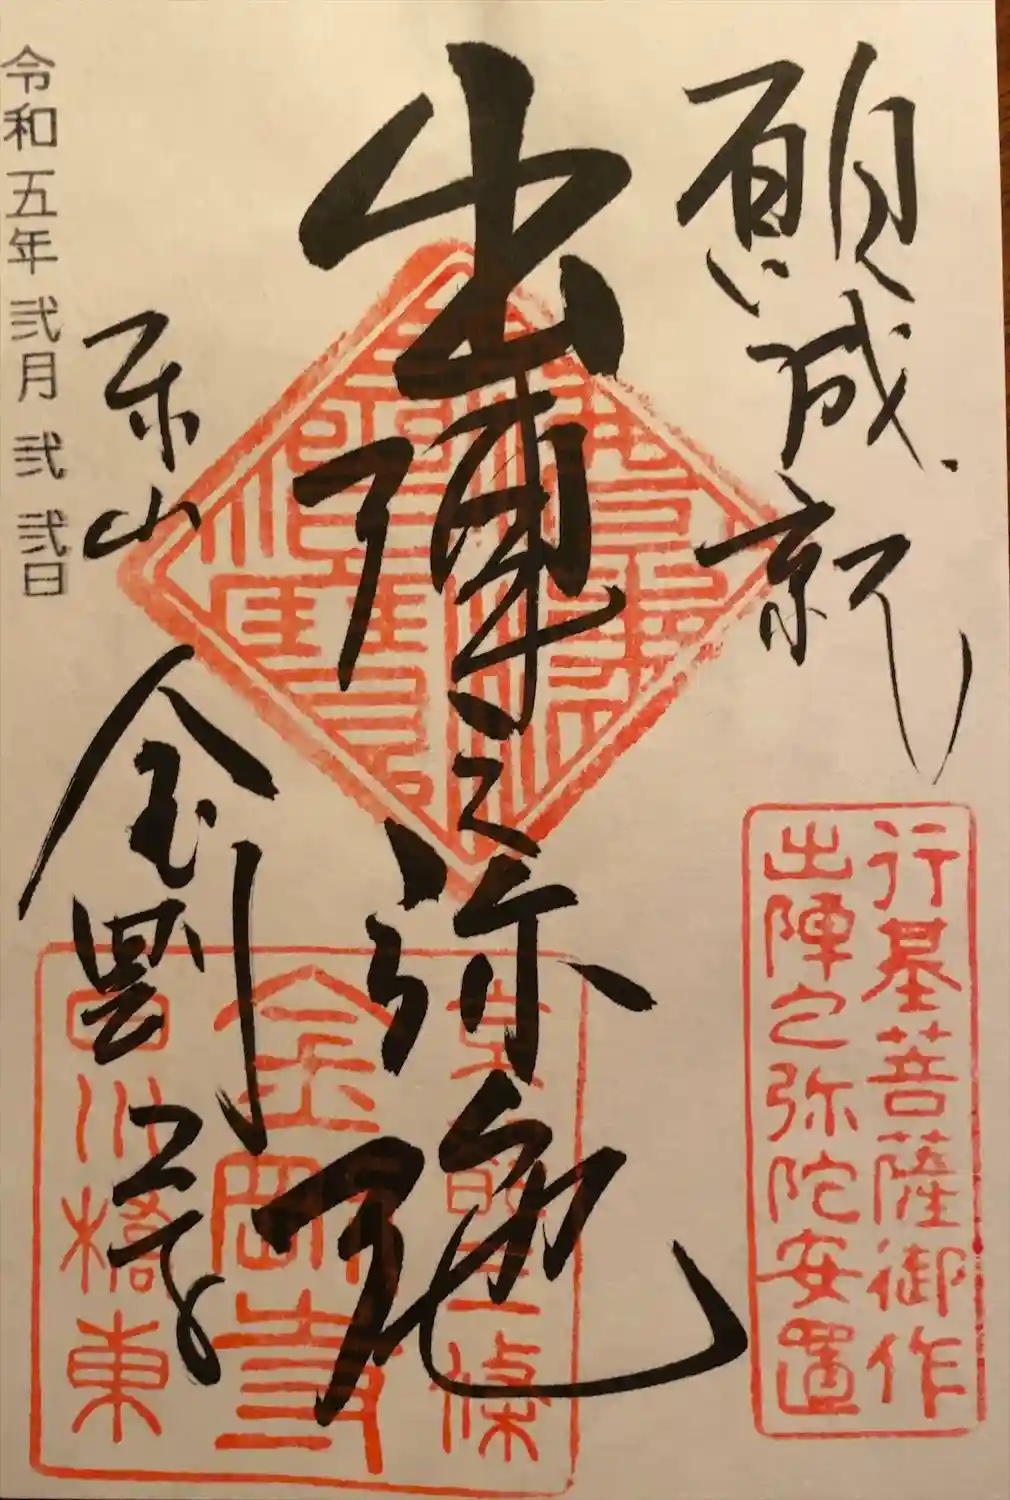 願成就
行基菩薩御作
出陣之弥陀安置
出陣之弥陀
金剛寺
白川橋東
東山 金剛寺
令和五年弐月弐弐日